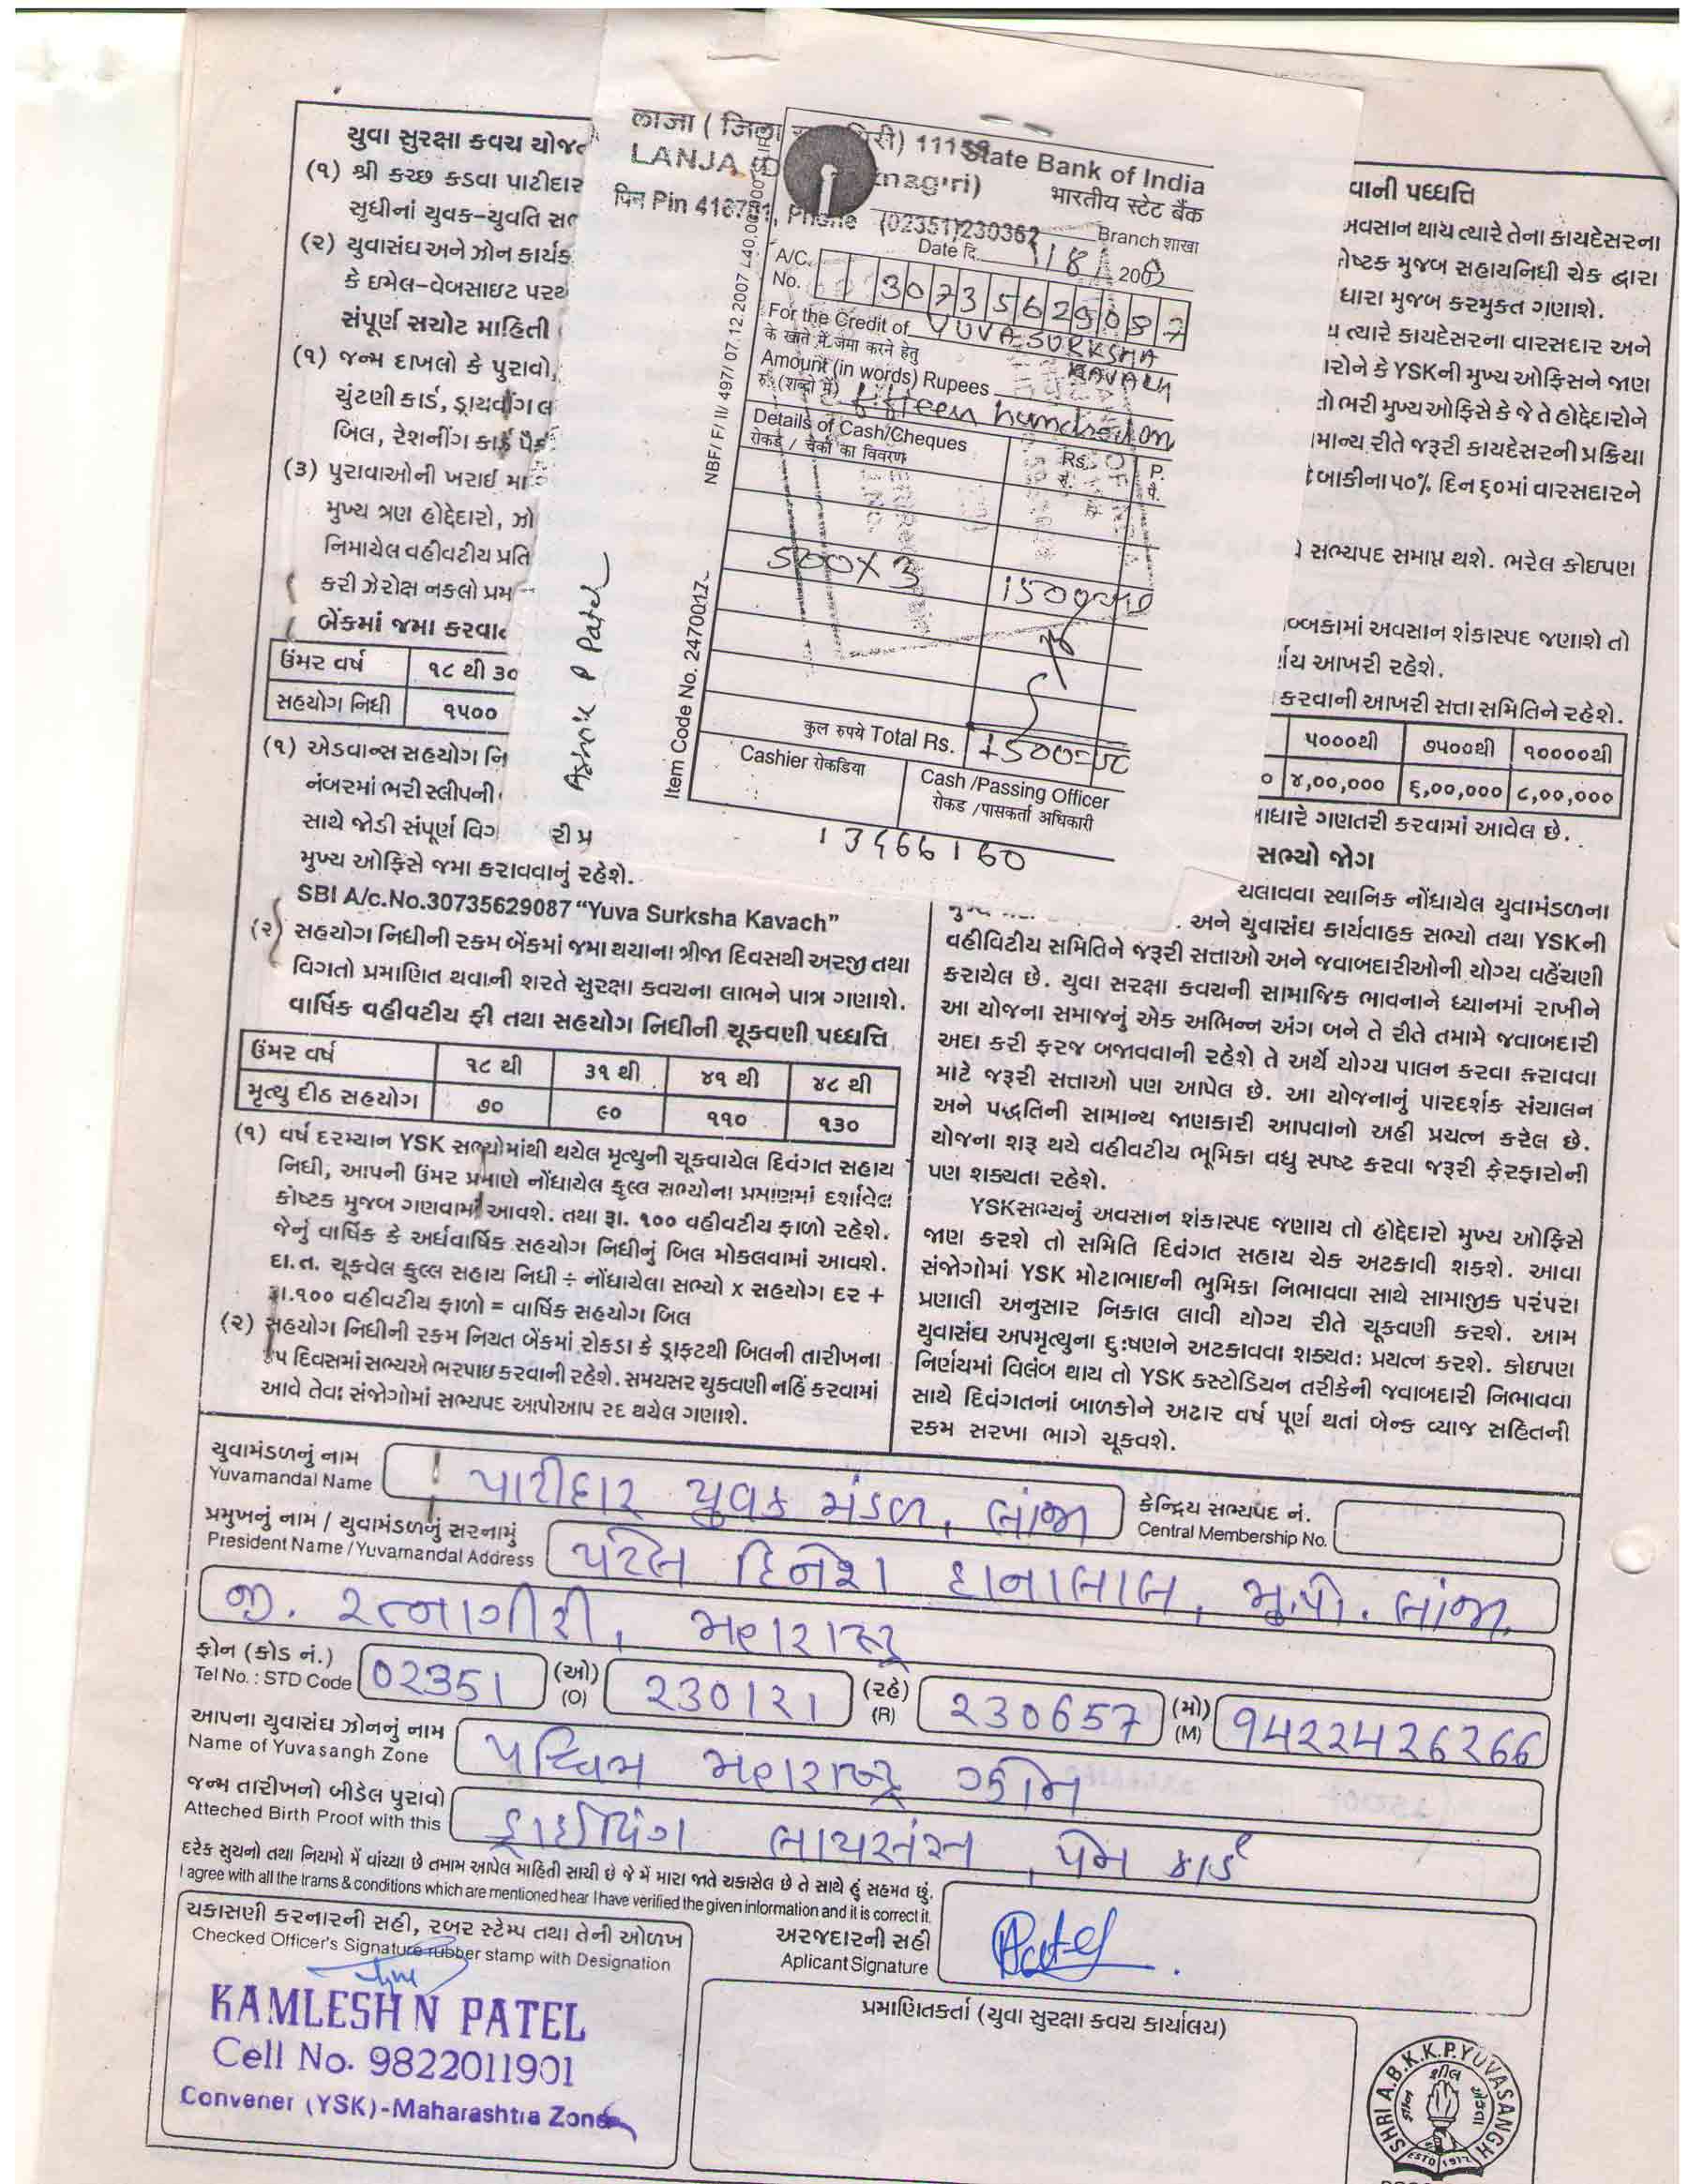 યુવા સુરક્ષા કવચ
(૧) શ્રી કચ્છ કડવા પાટીદાર
સુધીનાં યુવક-યુવતિ
(૨) યુવાસંઘ અને ઝોન
કે ઇમેલ-વેબસાઇટ
સંપૂર્ણ સચોટ માહિતી
(૧) જન્મ દાખલો કે પુરાવો,
ચુંટણી કાર્ડ, ડ્રાયવીંગ
બિલ, રેશનીંગ કાર્ડ
(૩) પુરાવાઓની ખરાઈ
મુખ્ય ત્રણ હોદ્દેદારો,
નિમાયેલ વહીવટીય
કરી ઝેરોક્ષ નકલો
બેંકમાં જમા
ઉંમર વર્ષ ૧૮ થી ૩૦
સહયોગ નિધી ૧૫૦૦
(૧) એડવાન્સ સહયોગ
નંબરમાં ભરી સ્લીપની
સાથે જોડી સંપૂર્ણ
મુખ્ય ઓફિસે જમા કરાવવાનું રહેશે.
SBI A/c.No.30735629087 “Yuva Surksha Kavach”
(૨) સહયોગ નિધીની રકમ બેંકમાં જમા થયાના ત્રીજા દિવસથી અરજી તથા
વિગતો પ્રમાણિત થવાની શરતે સુરક્ષા કવચના લાભને પાત્ર ગણાશે.
વાર્ષિક વહીવટીય ફી તથા સહયોગ નિધીની ચૂકવણી પધ્ધતિ
ઉંમર વર્ષ ૧૮ થી ૩૧ થી ૪૧ થી ૪૮ થી
મૃત્યુ દીઠ સહયોગ ૭૦ ૯૦ ૧૧૦ ૧૩૦
(૧) વર્ષ દરમ્યાન YSK સભ્યોમાંથી થયેલ મૃત્યુની ચૂકવાયેલ દિવંગત સહાય
નિધી, આપની ઉંમર પ્રમાણે નોંધાયેલ કુલ્લ સભ્યોના પ્રમાણમાં દર્શાવેલ
કોષ્ટક મુજબ ગણવામાં આવશે. તથા રૂા. ૧૦૦ વહીવટીય ફાળો રહેશે.
જેનું વાર્ષિક કે અર્ધવાર્ષિક સહયોગ નિધીનું બિલ મોકલવામાં આવશે.
દા.ત. ચૂકવેલ કુલ્લ સહાય નિધી ÷ નોંધાયેલા સભ્યો x સહયોગ દર +
રૂા.૧૦૦ વહીવટીય ફાળો = વાર્ષિક સહયોગ બિલ
(૨) સહયોગ નિધીની રકમ નિયત બેંકમાં રોકડા કે ડ્રાફટથી બિલની તારીખના
૪૫ દિવસમાં સભ્યએ ભરપાઇ કરવાની રહેશે. સમયસર ચુકવણી નહિં કરવામાં
આવે તેવા સંજોગોમાં સભ્યપદ આપોઆપ રદ થયેલ ગણાશે.
Ashok P Patel
NBF/ F/ III/ 497/ 07.12.2007
Item Code No.
लाजा ( जिला 11159
LANJA
पिन Pin 416701, Phone (02351)230362
State Bank of India
भारतीय स्टेट बैंक
Branch शाखा
Date दि. 8 2009
A/C. No. 30735629087
For the Credit of YUVA SURKSHA
के खाते में जमा करने हेतु KAVACH
Amount (in words) Rupees
रु. (शब्दों में) fifteen hundred on
Details of Cash/Cheques Rs. P.
रोकड़ / चेकों का विवरण रु. पै.
500 x 3 1500=00
कुल रुपये Total Rs. 1500=00
Cashier रोकडिया
Cash /Passing Officer
रोकड /पासकर्ता अधिकारी
પધ્ધતિ
અવસાન થાય ત્યારે તેના કાયદેસરના
મુજબ સહાયનિધી ચેક દ્વારા
ધારા મુજબ કરમુક્ત ગણાશે.
ત્યારે કાયદેસરના વારસદાર અને
કે YSKની મુખ્ય ઓફિસને જાણ
ભરી મુખ્ય ઓફિસે કે જે તે હોદ્દેદારોને
રીતે જરૂરી કાયદેસરની પ્રક્રિયા
બાકીના ૫૦% દિન ૬૦માં વારસદારને
સભ્યપદ સમાપ્ત થશે. ભરેલ કોઇપણ
અવસાન શંકાસ્પદ જણાશે તો
આખરી રહેશે.
કરવાની આખરી સત્તા સમિતિને રહેશે.
૫૦૦૦થી ૭૫૦૦થી ૧૦૦૦૦થી
૪,૦૦,૦૦૦ ૬,૦૦,૦૦૦ ૮,૦૦,૦૦૦
ગણતરી કરવામાં આવેલ છે.
સભ્યો જોગ
ચલાવવા સ્થાનિક નોંધાયેલ યુવામંડળના
અને યુવાસંઘ કાર્યવાહક સભ્યો તથા YSKની
વહીવિટીય સમિતિને જરૂરી સત્તાઓ અને જવાબદારીઓની યોગ્ય વહેંચણી
કરાયેલ છે. યુવા સરક્ષા કવચની સામાજિક ભાવનાને ધ્યાનમાં રાખીને
આ યોજના સમાજનું એક અભિન્ન અંગ બને તે રીતે તમામે જવાબદારી
અદા કરી ફરજ બજાવવાની રહેશે તે અર્થે યોગ્ય પાલન કરવા કરાવવા
માટે જરૂરી સત્તાઓ પણ આપેલ છે. આ યોજનાનું પારદર્શક સંચાલન
અને પદ્ધતિની સામાન્ય જાણકારી આપવાનો અહી પ્રયત્ન કરેલ છે.
યોજના શરૂ થયે વહીવટીય ભૂમિકા વધુ સ્પષ્ટ કરવા જરૂરી ફેરફારોની
પણ શક્યતા રહેશે.
YSKસભ્યનું અવસાન શંકાસ્પદ જણાય તો હોદ્દેદારો મુખ્ય ઓફિસે
જાણ કરશે તો સમિતિ દિવંગત સહાય ચેક અટકાવી શકશે. આવા
સંજોગોમાં YSK મોટાભાઇની ભુમિકા નિભાવવા સાથે સામાજીક પરંપરા
પ્રણાલી અનુસાર નિકાલ લાવી યોગ્ય રીતે ચૂકવણી કરશે. આમ
યુવાસંઘ અપમૃત્યુના દુઃષણને અટકાવવા શક્યતઃ પ્રયત્ન કરશે. કોઇપણ
નિર્ણયમાં વિલંબ થાય તો YSK કસ્ટોડિયન તરીકેની જવાબદારી નિભાવવા
સાથે દિવંગતનાં બાળકોને અઢાર વર્ષ પૂર્ણ થતાં બેન્ક વ્યાજ સહિતની
રકમ સરખા ભાગે ચૂકવશે.
યુવામંડળનું નામ
Yuvamandal Name પાટીદાર યુવક મંડળ, લાંજા
કેન્દ્રિય સભ્યપદ નં.
Central Membership No.
પ્રમુખનું નામ / યુવામંડળનું સરનામું
President Name / Yuvamandal Address પટેલ દિનેશ દાનાલાલ, મુ.પો. લાંજા,
જી. રત્નાગીરી, મહારાષ્ટ્ર
ફોન (કોડ નં.) (ઓ) (રહે) (મો)
Tel No. : STD Code 02351 (O) 230121 (R) 230657 (M) 9422426266
આપના યુવાસંઘ ઝોનનું નામ
Name of Yuvasangh Zone પશ્ચિમ મહારાષ્ટ્ર ઝોન
જન્મ તારીખનો બીડેલ પુરાવો
Atteched Birth Proof with this ડ્રાઈવિંગ લાયસંસ, પેન કાર્ડ
દરેક સુચનો તથા નિયમો મેં વાંચ્યા છે તમામ આપેલ માહિતી સાચી છે જે મેં મારા જાતે ચકાસેલ છે તે સાથે હું સહમત છું.
I agree with all the trams & conditions which are mentioned hear I have verified the given information and it is correct it.
ચકાસણી કરનારની સહી, રબર સ્ટેમ્પ તથા તેની ઓળખ
Checked Officer's Signature rubber stamp with Designation
અરજદારની સહી
Aplicant Signature
Patel
KAMLESH N PATEL
Cell No. 9822011901
Convener (YSK)-Maharashtra Zone
પ્રમાણિતકર્તા (યુવા સુરક્ષા કવચ કાર્યાલય)
SHRI A.B.K.K.P. YUVASANGH
શીલ
ESTD 1917